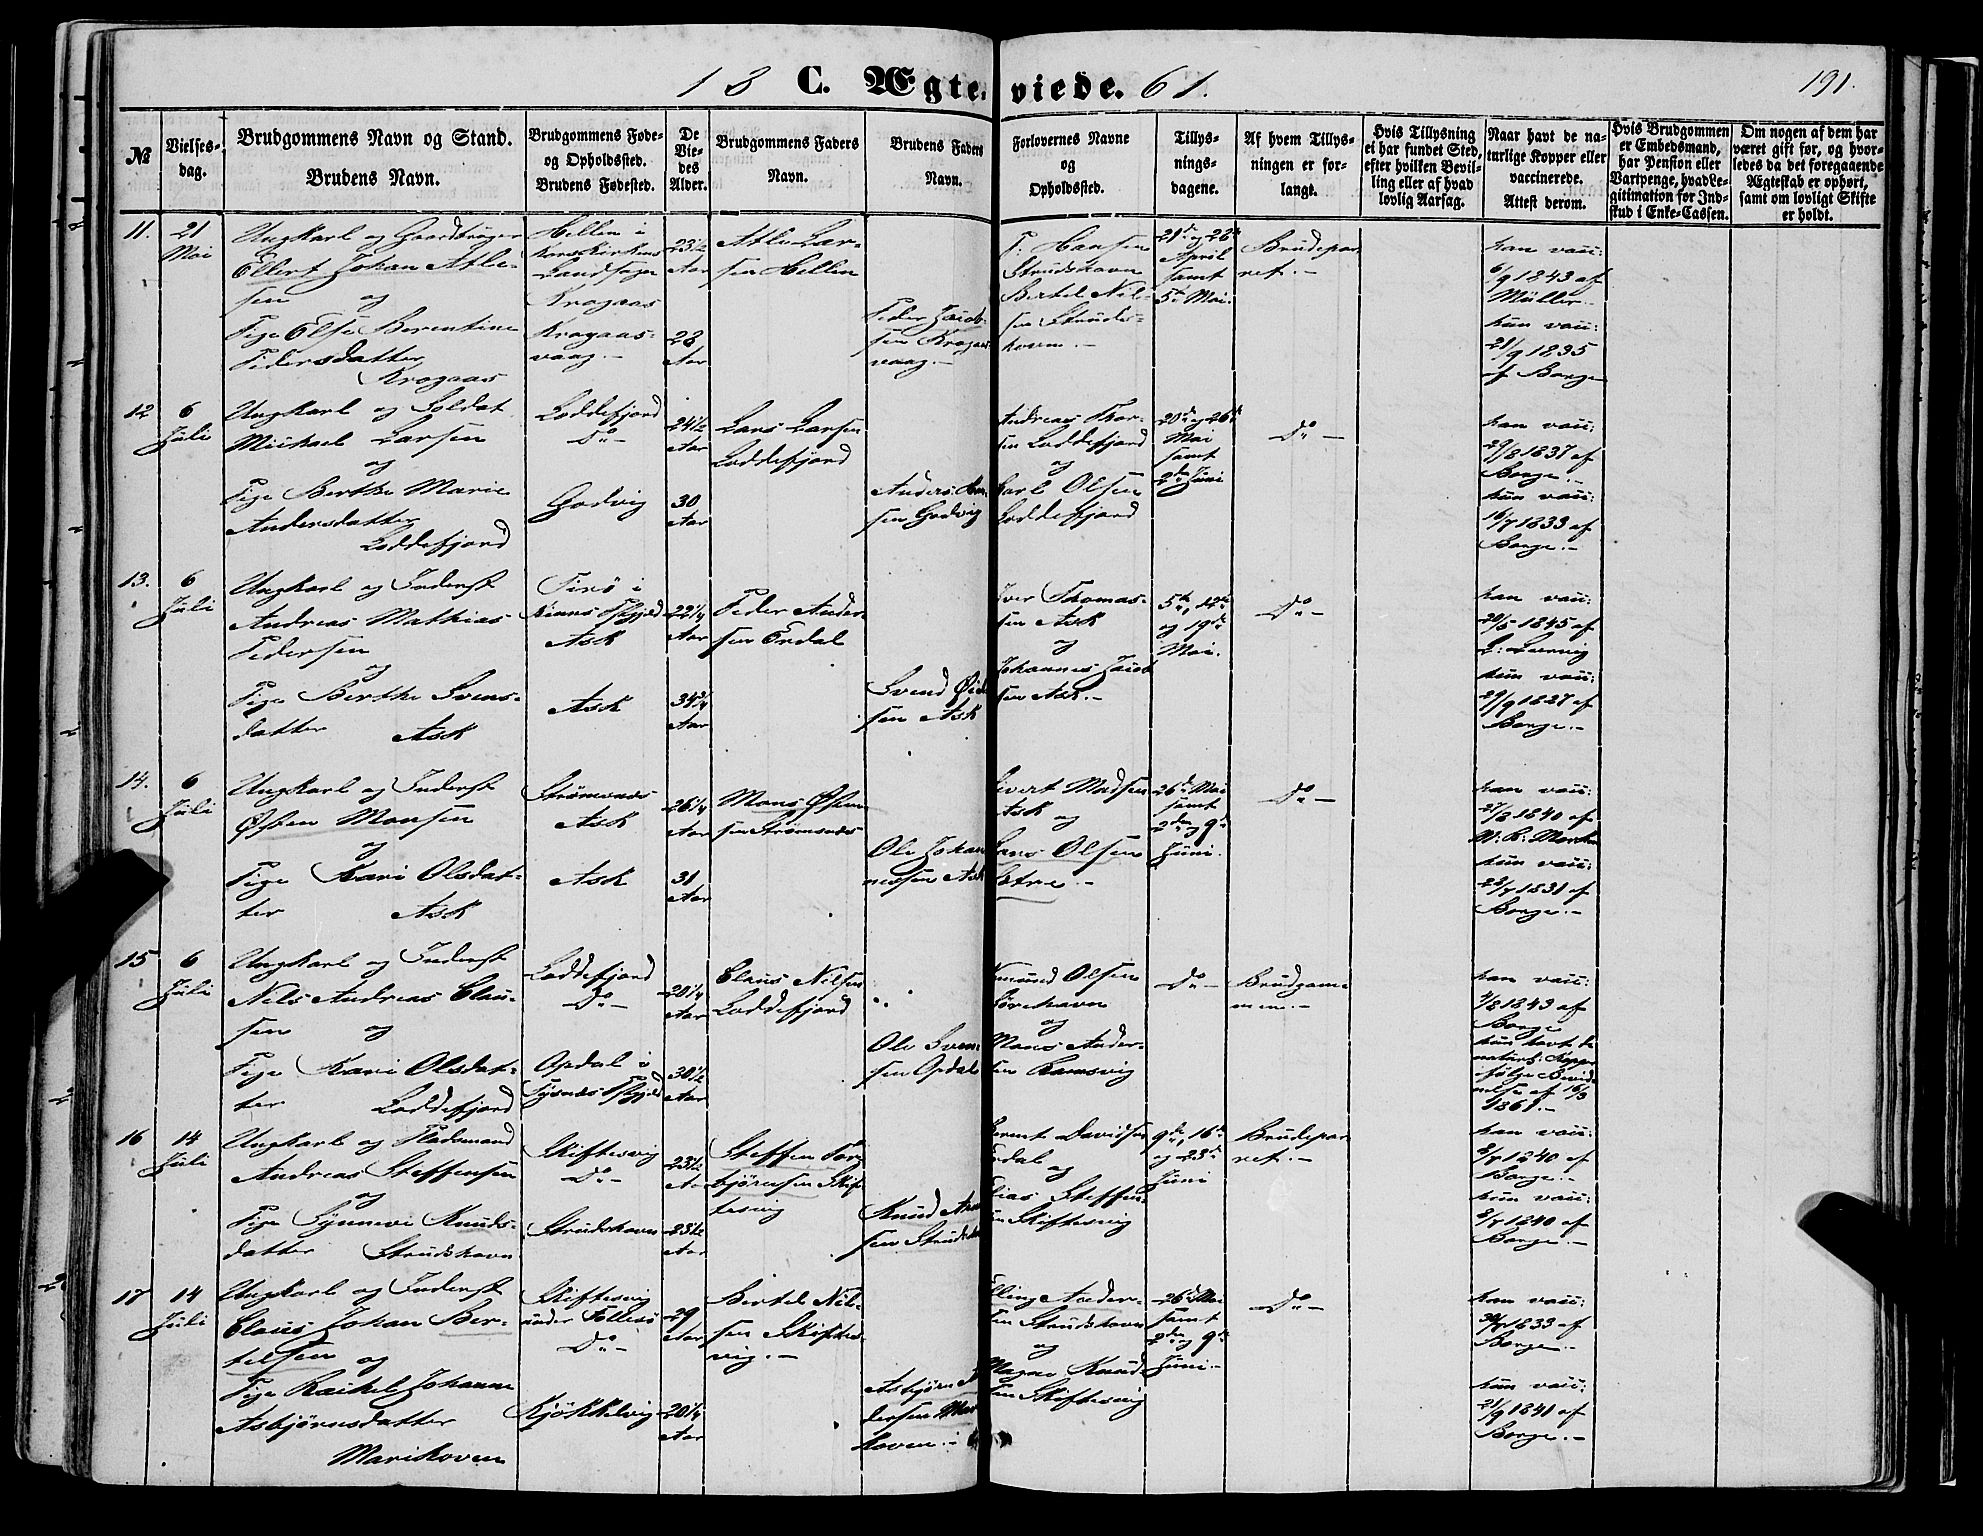 18 C. Ægteviede. 61.
191.
№
Vielses-
dag.
Brudgommens Navn og Stand.
Brudens Navn.
Brudgommens Føde-
og Opholdssted.
Brudens Fødested.
De
Vie-
des
Alder.
Brudgommens Faders
Navn.
Brudens Faders
Navn.
Forlovernes Navne
og
Opholdssted.
Tillys-
nings-
dagene.
Af hvem Tillys-
ningen er for-
langt.
Hvis Tillysning
ei har fundet Sted,
efter hvilken Bevil-
ling eller af hvad
lovlig Aarsag.
Naar havt de na-
turlige Kopper eller
vaccinerede.
Attest derom.
Hvis Brudgommen
er Embedsmand,
har Pension eller
Vartpenge, hvad Le-
gitimation for Ind-
skud i Enke-Cassen.
Om nogen af dem har
været gift før, og hvor-
ledes da det foregaaende
Ægteskab er ophørt,
samt om lovligt Skifte
er holdt.
11.
21
Mai
Ungkarl og Gaardbruger
Ellert Johan Atle-
sen og
Pige Else Berentine
Pedersdatter
Krogaas
Hellen i
Korskirkens
Landsogn
Krogaas
Krogaas-
vaag.-
23½
Aar
28
Aar
Atle Lar-
sen Hellen
Peder Jacob-
sen Krogaas-
vaag.-
P. Hansen
Strudshavn
Bertel Nil-
sen Struds-
havn.-
21de og 28de
April
samt
5te Mai.
Brudepar-
ret.-
han vacc:
6/9 1843 af
Müller.
hun vacc:
21/9 1835
af Borge
12
6
Juli
Ungkarl og Soldat
Michael Larsen
og
Pige Berthe Marie
Andersdatter
Loddefjord
Loddefjord
Do-
Godvig
24½
Aar
30
Aar
Lars Larsen
Loddefjord
Anders Han-
sen Godvig
Andreas Thor-
sen Loddefjord
og
Carl Olsen
Loddefjord
20de og 26de
Mai
samt
2den Juni
Do-
han vacc:
29/8 1837 af
Borge.-
hun vacc:
16/7 1833 af
Borge.-
13.
6
Juli
Ungkarl og Inderst
Andreas Mathias
Pedersen
og
Pige Berthe Svens-
datter Ask
Kinns Pgjeld
Ask
Ask
22¼
Aar
34¾
Aar
Peder Ander-
sen Erdal
Svend
sen Ask
Iver Thomas-
sen Ask
og
Johannes Jacob-
sen Ask.-
5te, 12te
og 19de
Mai.
Do-
han vacc:
20/5 1845 af
hun vacc:
29/9 1827 af
Borge.-
14.
6
Juli
Ungkarl og Inderst
Østen Monsen
og
Pige Kari Olsdat-
ter Ask
Strømsnæs
Ask
Ask
26¼
Aar
31
Aar
Mons Østen-
sen Strømsnæs
Ole Johan-
nessen Ask
Sivert Madsen
Ask og
Lars Olsen
Sætre.-
26de Mai
samt
2den og 9de
Juni.
Do-
han vacc:
27/8 1840 af
hun vacc:
23/7 1831 af
Borge.-
15
6
Juli
Ungkarl og Inderst
Nils Andreas Clau-
sen og
Pige Kari Olsdat-
ter Loddefjord
Loddefjord
Do-
Opdal i
Tysnæs Pgjeld
20¼
Aar
30½
Aar
Claus Nilsen
Loddefjord
Ole Sven-
sen Opdal
Amund Olsen
og
Mons Ander-
sen Ramsvig
Do-
Brudgom-
men.-
han vacc:
4/8 1843 af
Borge
hun havt de
naturl: Kopper
ifølge Bevid-
nelse af 16/3
1861.-
16
14
Juli
Ungkarl og Pladsmand
Andreas Steffensen
og
Pige Synneve Knuds-
datter Strudshavn
Skiftesvig
Do-
Strudshavn
23½
Aar
23½
Aar
Steffen Tor-
bjørnsen Skif-
tesvig
Knud
sen Strudshavn
Berent Davidsen
Erdal
og
Elias Steffen-
sen Skiftesvig
9de, 16de
og 23de
Juni
Brudepar-
ret.-
han vacc:
8/7 1840 af
Borge.-
hun vacc:
8/7 1840 af
Borge.-
17
14
Juli
Ungkarl og Inderst
Claus Johan Ber-
telsen og
Pige Rachel Johanne
Asbjørnsdatter
Marikoven
Skiftesvig
under Follesø
Do-
Kjøkkelvig
29
Aar
20¼
Aar
Bertel Nil-
sen Skiftes-
vig.-
Asbjørn Pe-
dersen Mari-
koven.-
Elling Ander-
sen Strudshavn
og
Magne Knud-
sen Skiftesvig
26de Mai
samt
2den og 9de
Juni.-
Do-
han vacc:
30/7 1833 af
Borge.-
hun vacc:
21/9 1841 af
Borge.-